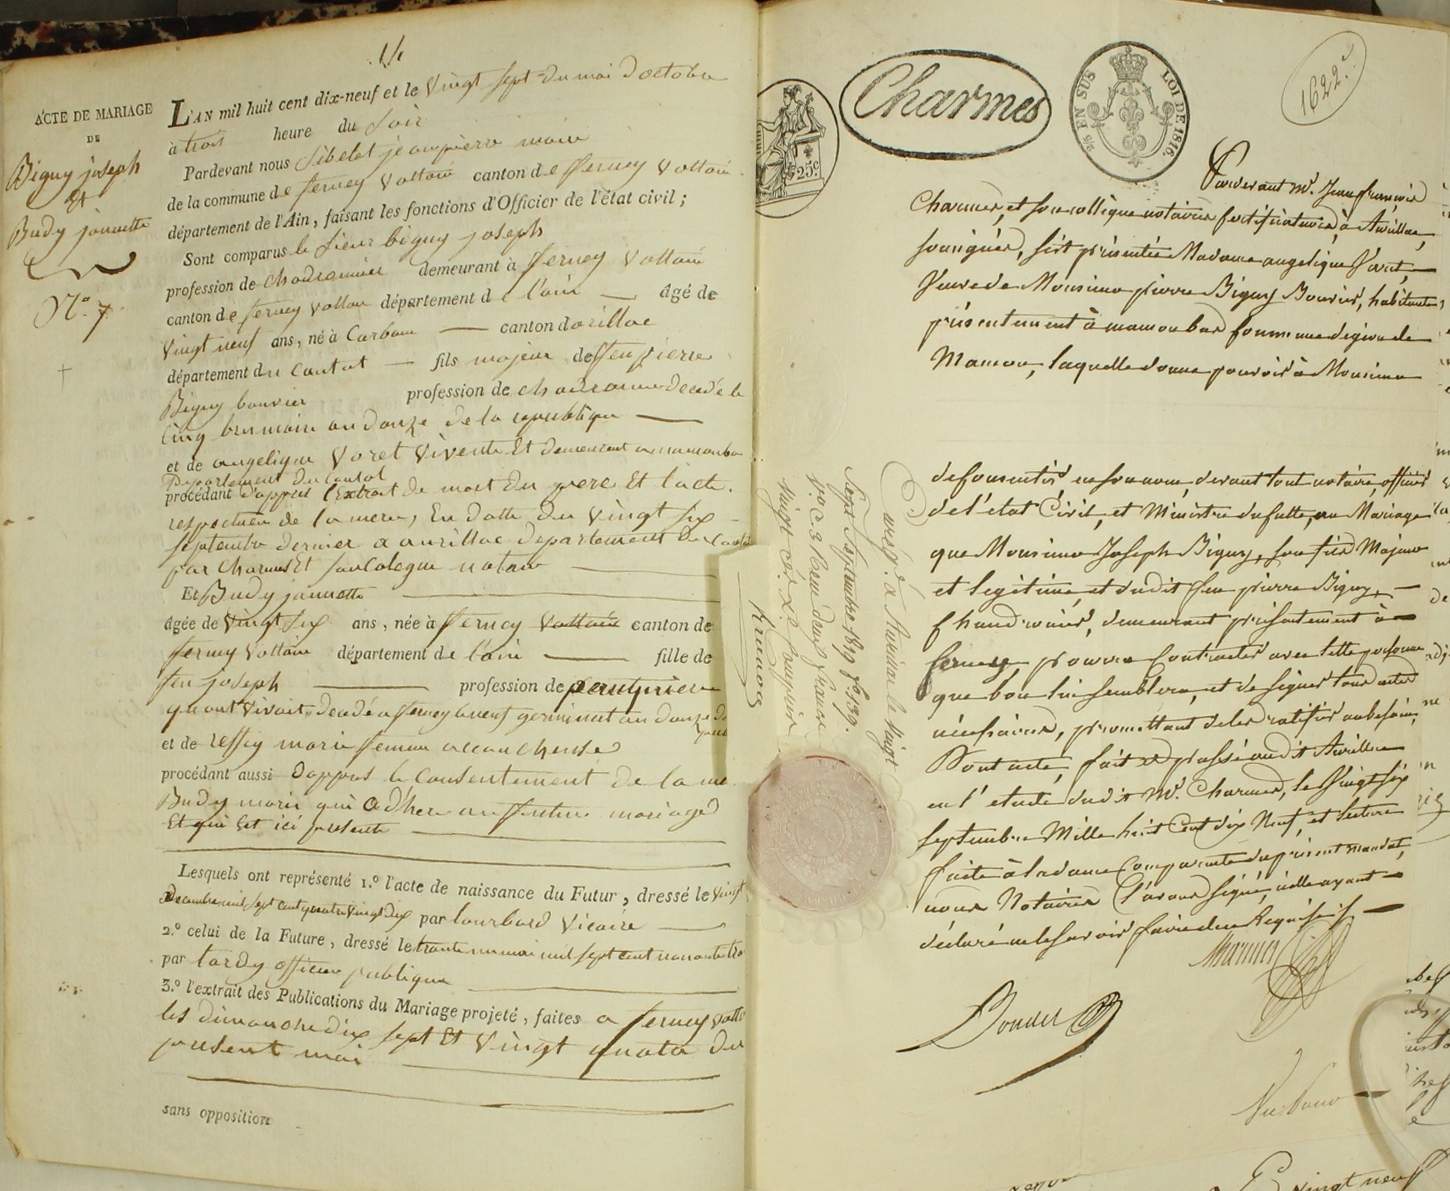 14
ACTE DE MARIAGE
DE
Biguy joseph
Et
Budy jannette
N.o 7
L'AN mil huit cent dix-neuf et le vingt sept du moi d'octobre
à trois heure du soir
Pardevant nous Sibelet jeanpierre maire
de la commune de ferney voltaire canton de fferney voltaire
département de l'Ain, faisant les fonctions d'Officier de l'état civil;
Sont comparus le sieur biguy joseph
profession de chodronnier demeurant à fferney voltaire
canton de ferney voltaire département de l'ain âgé de
vingt neuf ans, né à canton d'orillac
département du cantal fils majeur de ffeu pierre
Biguy bouvier profession de chodronnier décédé le
cinq brumaire an douze de la republique
et de angelique voret vivente Et demeurant a mamouba
Departement du cantal
procédant d'appres l'Extrait de mort du pere Et l'acte
respectueu de la mere, En datte du vingt six
septembre dernier a aurillac departement du cantal
par Charmes Et son colegue notaire
Et Budy jannette
âgée de vingt six ans, née à fferney voltaire canton de
ferney voltaire département de l'ain fille de
feu joseph profession de
quant vivait décédé a fferney le neuf germinal an douze
et de marie ffemme accoucheuse
procédant aussi d'appres le consentement de la me
Budy marie qui adhere au futur mariage
Et qui Est ici presente
Lesquels ont représenté 1.o l'acte de naissance du Futur, dressé le vingt
Decembre mil sept cent quatre vingt dix par lombard vicaire
2.o celui de la Future, dressé le trente un mai mil sept cent nonante trois
par tardy officier publique
3.o l'extrait des Publications du Mariage projeté, faites a fferney volt
les dimanche dix sept Et vingt quatre du
present moi
sans opposition
25c
Charmes
EN SUS
LOI DE 1816.
1622
Pardevant Mr. Jean françois
Charmes, et son collègue notaires à Aurillac,
soussignés, s'est présentée Madame angelique Voret,
Veuve de Monsieur pierre Biguy Bouvier, habitante
présentement à mamoubas commune de
Mamou, laquelle donne pouvoir à Monsieur
de consentir, en son nom, devant tout notaire, officier
de l'état Civil, et Ministre du culte, au Mariage
que Monsieur Joseph Biguy, son fils Majeur
et légitime, et dudit feu pierre Biguy,
chaudronnier, demeurant présentement à
ferney, pourra contracter avec telle personne
que bon lui semblera, et de signer tous actes
nécessaires, promettant de les ratifier au besoin.
Dont acte, fait et passé audit Aurillac
en l'étude dudit Mr. Charmes, le vingt six
septembre Mille huit Cent dix Neuf, et lecture
faite à la dame Comparante du présent mandat,
nous Notaires l'avons signé, icelle ayant
déclaré ne le savoir faire de ce Requise.
Charmes
Enreg.é à Aurillac le vingt
Sept Septembre 1819 f.o 139.
v.o c. 3 Reçu deux francs
vingt cs. Xe. Compris